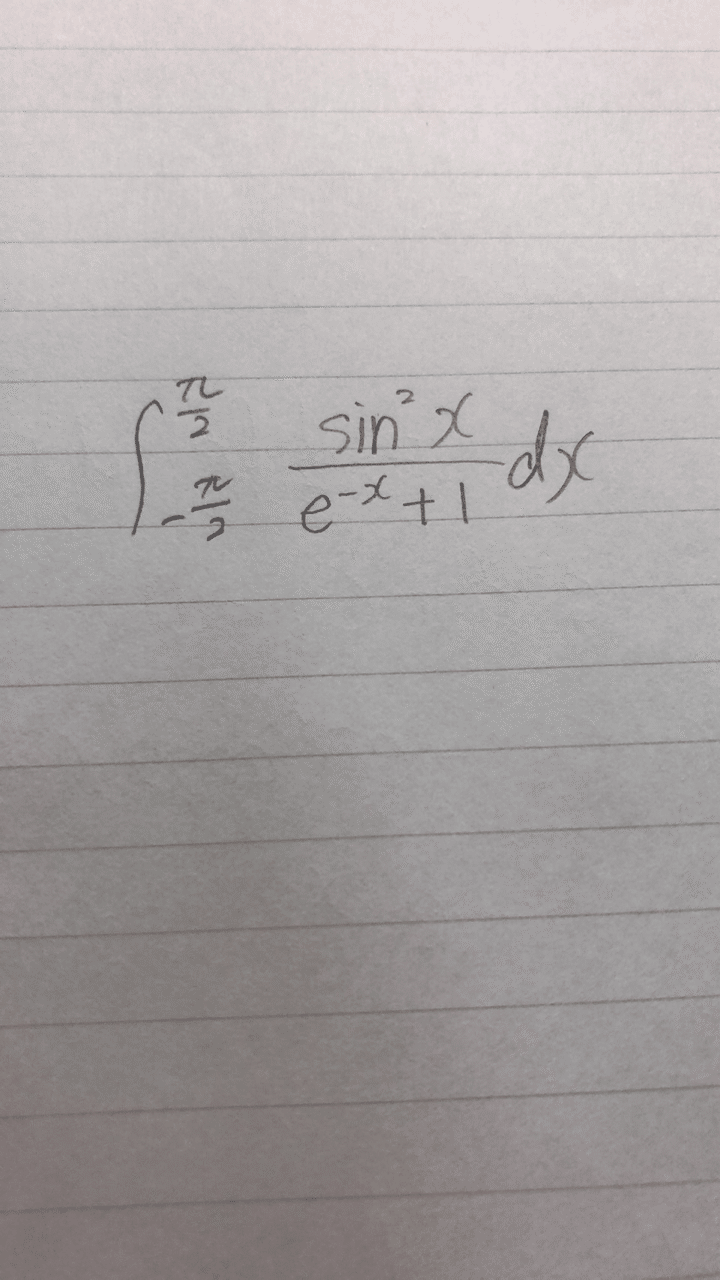 ∫_{-π/2}^{π/2} \frac{sin² x}{e^{-x} + 1} dx